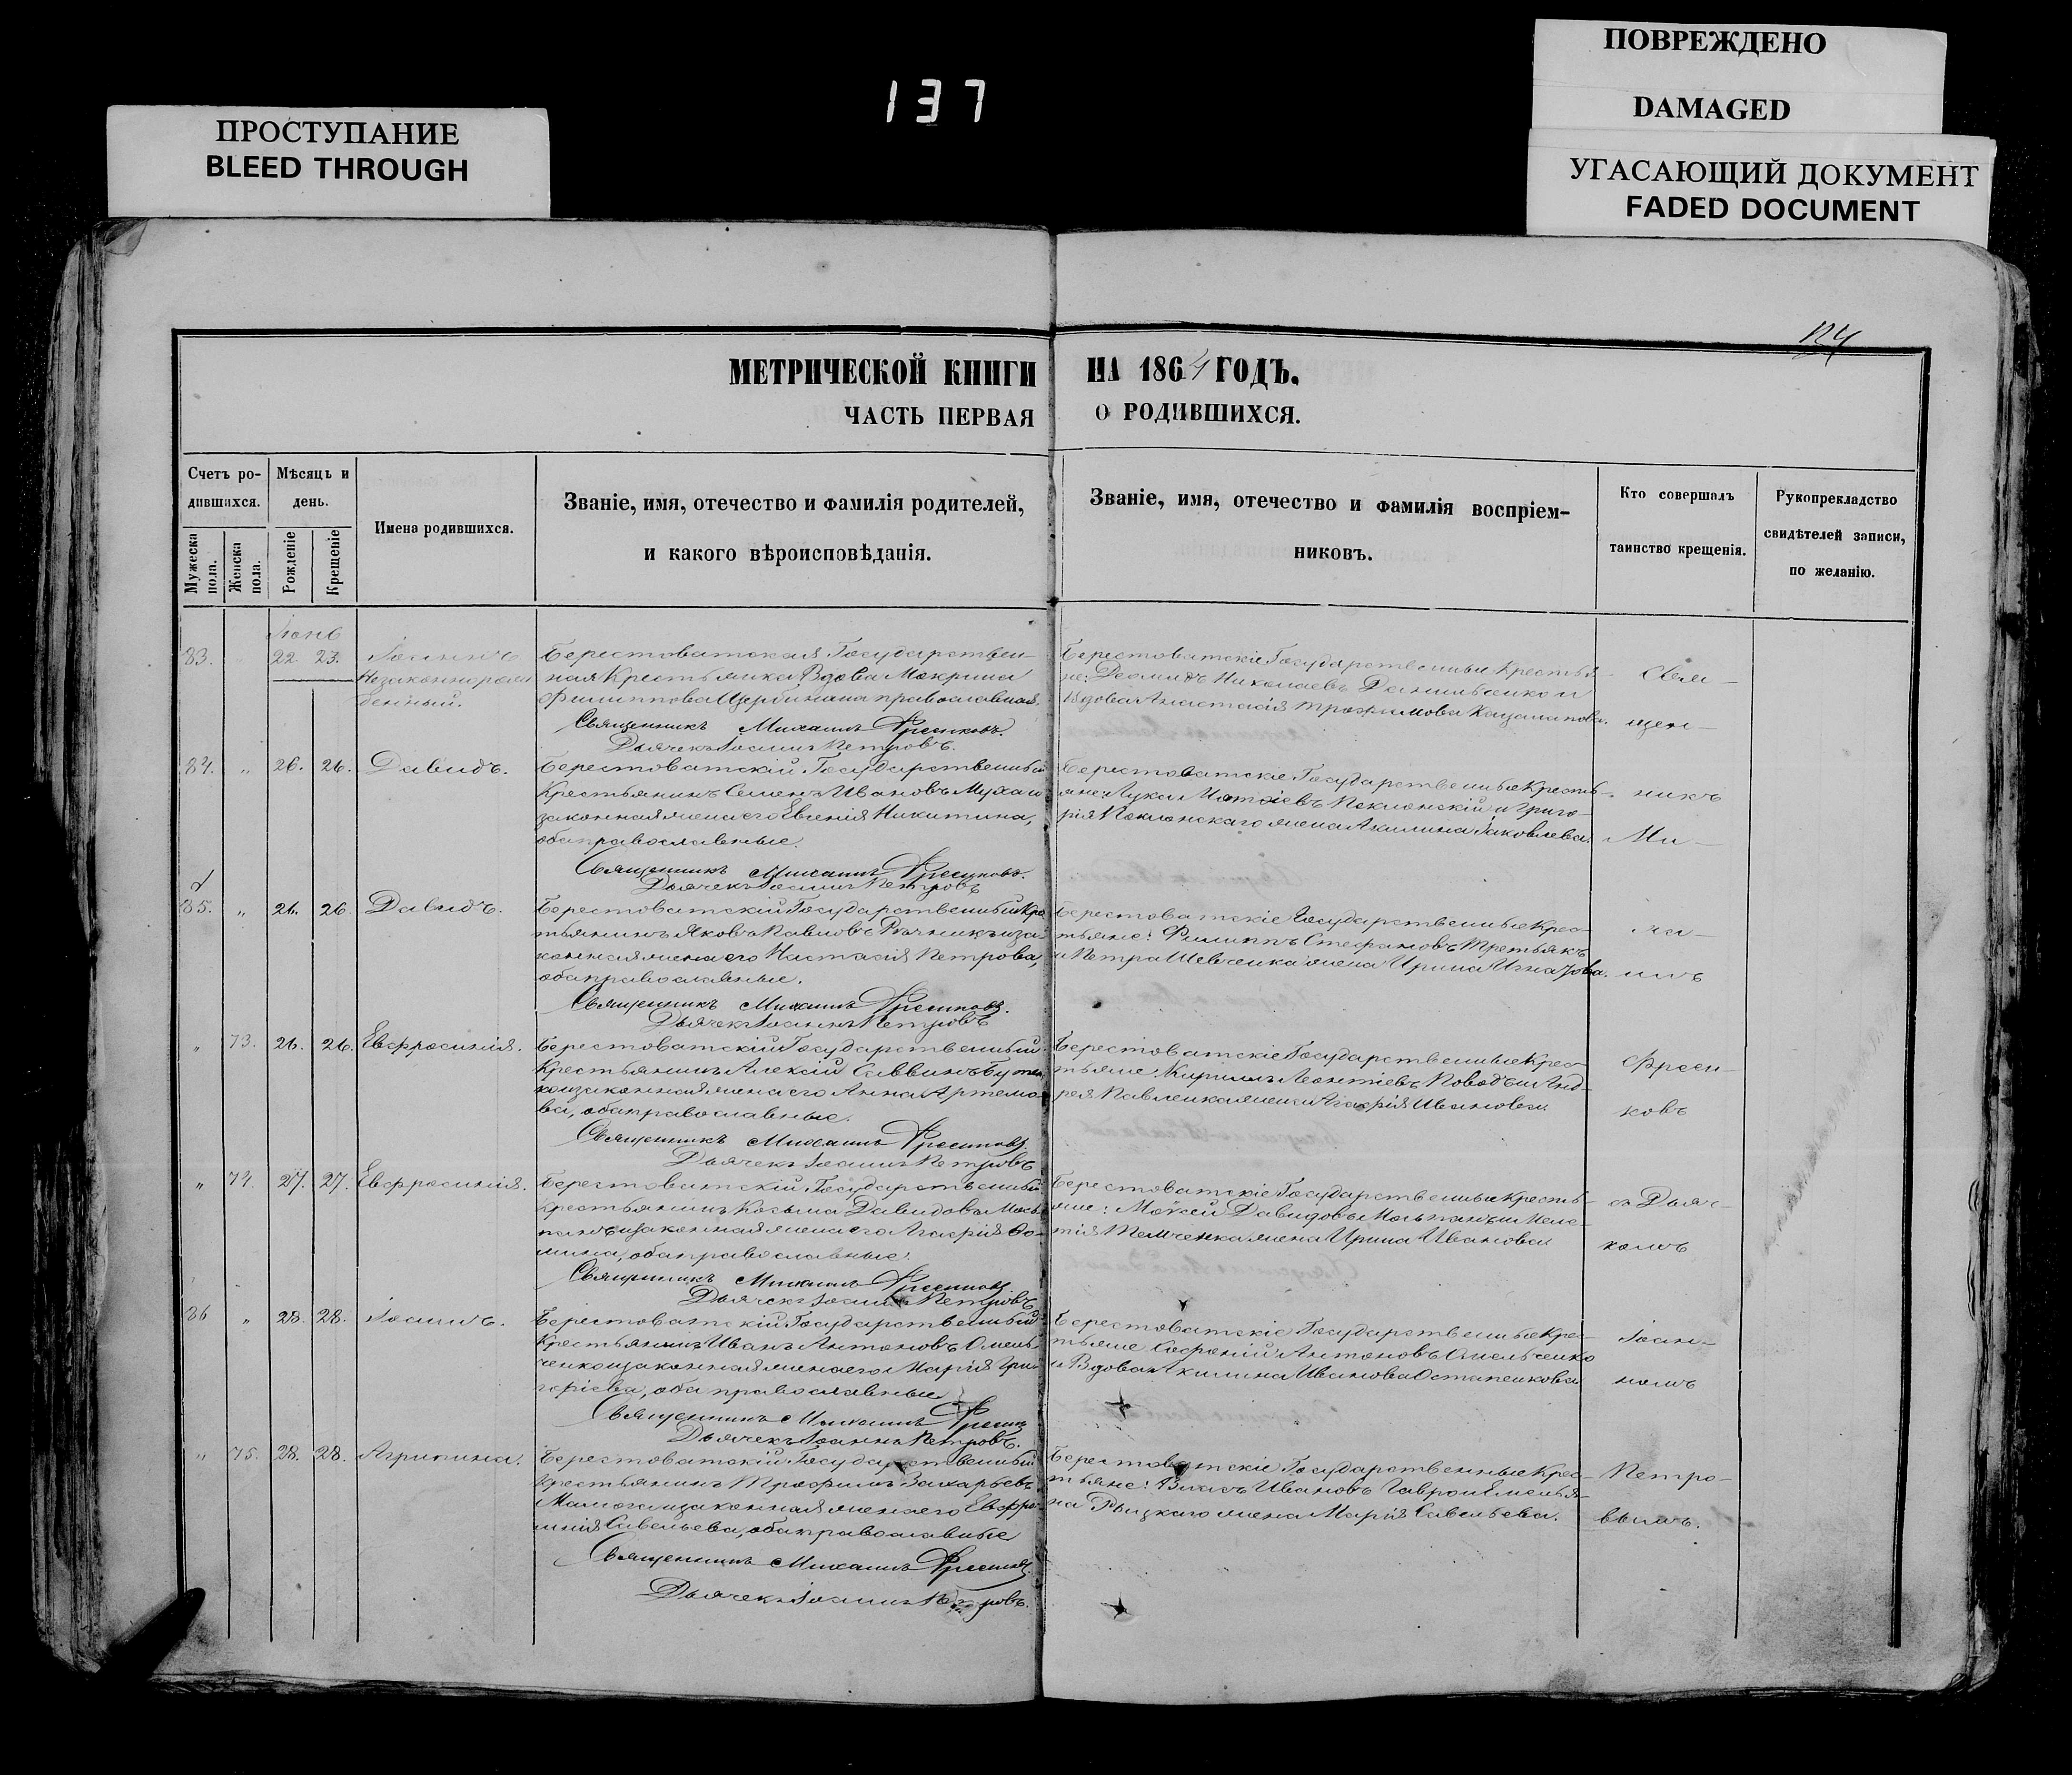 ПОВРЕЖДЕНО
DAMAGED
137
ПРОСТУПАНИЕ
BLEED THROUGH
УГАСАЮЩИЙ ДОКУМЕНТ
FADED DOCUMENT
МЕТРИЧЕСКОЙ КНИГИ НА 1864 ГОДЪ.
ЧАСТЬ ПЕРВАЯ О РОДИВШИХСЯ.
Счетъ ро-
дившихся.
Мужеска пола.
Женска пола.
Мѣсяць и
день.
Рожденіе
Крещеніе
Имена родившихся.
Званіе, имя, отечество и фамилія родителей,
и какого вѣроисповѣданія.
Званіе, имя, отечество и фамилія воспріем-
никовъ.
Кто совершалъ
таинство крещенія.
Рукоприкладство
свидѣтелей записи,
по желанію.
83. 22. 23. Іоаннъ
Незаконнорож
денный.
Берестоватская Государствен-
ная Крестьянка Вдова Мокрина
Филиппова Щербинина православная.
Священникъ Михаилъ
Дьячекъ Іоаннъ Петровъ.
Берестоватскіе Государственные Крестья-
не: Деомидъ Николаевъ Данильченко и
Вдова Анастасія Трофимова
Свя-
щен-
84. " 26. 26. Давидъ.
Берестоватскій Государственный
Крестьянинъ Семенъ Ивановъ Муха и
законная жена его Евгенія Никитина,
оба православные.
Священникъ Михаилъ
Дьячекъ Іоаннъ Петровъ
Берестоватскіе Государственные Кресть-
яне: Лука Матѳіевъ Поклонскій и Григо-
рія Поклонскаго жена Акилина Іаковлева.
никъ
Ми-
85. " 26. 26. Давидъ.
Берестоватскій Государственный Крес
тьянинъ Яковъ Павловъ и за-
конная жена его Настасія Петрова,
оба православные.
Священникъ Михаилъ
Дьячекъ Іоаннъ Петровъ
Берестоватскіе Государственные Крес-
тьяне: Филиппъ Стефановъ Третьякъ
и Петра Шевченка жена Ирина Игнатова.
ха-
илъ
" 73. 26. 26. Евфросинія.
Берестоватскій Государственный
Крестьянинъ Алексій Саввинъ
и законная жена его Анна Артемо
ва, оба православные.
Священникъ Михаилъ
Дьячекъ Іоаннъ Петровъ
Берестоватскіе Государственные Крес-
тьяне: Кириллъ Леонтіевъ и Анд-
рея Павленка жена Агафія Иванова
ковъ
" 74. 27. 27. Евфросинія.
Берестоватскій Государственный
Крестьянинъ Козьма Давидовъ
и законная жена его Агафія Ѳо-
мина, оба православные.
Священникъ Михаилъ
Дьячекъ Іоаннъ Петровъ
Берестоватскіе Государственные Кресть-
яне: Моѵсей Давидовъ и Меле-
тія Темченка жена Ирина Иванова
съ Дьяч-
комъ
86 " 28. 28. Іоаннъ.
Берестоватскій Государственный
Крестьянинъ Иванъ Антоновъ Омель-
ченко и законная жена его Марія Гри-
горіева, оба православные
Священникъ Михаилъ
Дьячекъ Іоаннъ Петровъ.
Берестоватскіе Государственные Крес-
тьяне Софроній Антоновъ Омельченко
и Вдова Акилина Иванова Остапенкова
Іоан-
номъ
" 75. 28. 28. Агрипина.
Берестоватскій Государственный
Крестьянинъ Трофимъ Захарьевъ
и законная жена его Евфро-
синія Савельева, оба православные
Священникъ Михаилъ
Дьячекъ Іоаннъ Петровъ.
Берестоватскіе Государственные Крес-
тьяне: Власъ Ивановъ и Емелья-
на жена Марія Савельева.
Петро-
вымъ.